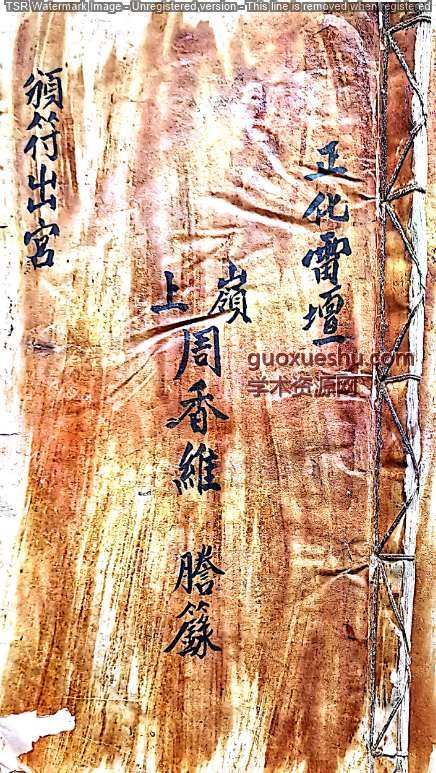 TSR Watermark Image - Unregistered version - This line is removed when registered
正化雷壇
嶺上
周香維 謄籙
頒符出宮
guoxueshu.com
学术资源网